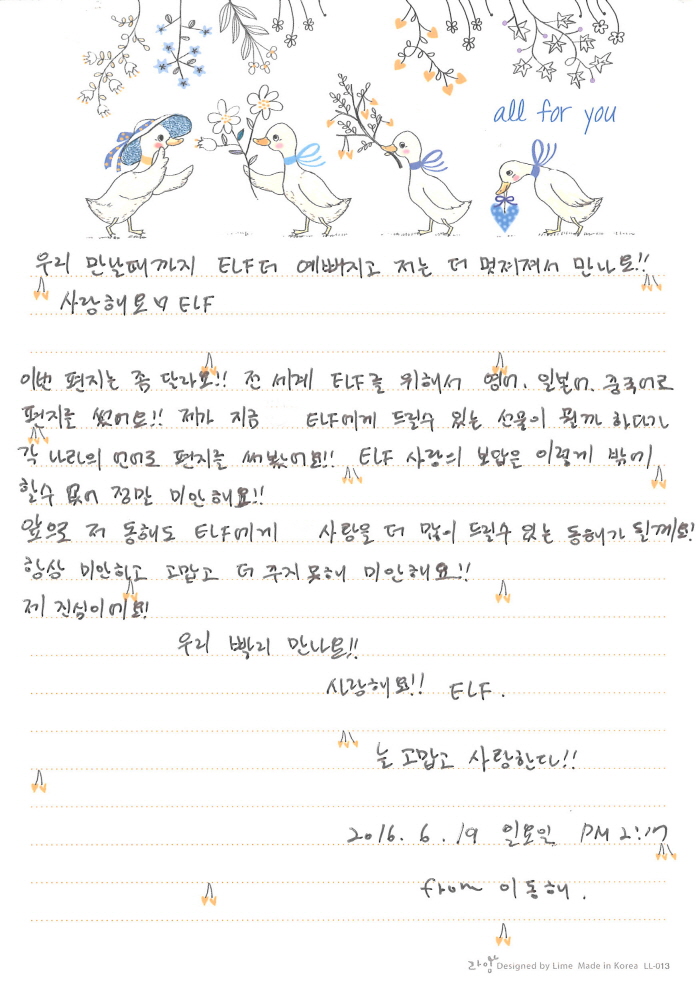 all for you
우리 만날때까지 ELF더 예뻐지고 저는 더 멋져져서 만나요!!
사랑해요♡ ELF
이번 편지는 좀 달라요!! 전 세계 ELF를 위해서 영어, 일본어, 중국어로
편지를 썼어요!! 제가 지금 ELF에게 드릴수 있는 선물이 뭘까 하다가
각 나라의 언어로 편지를 써봤어요!! ELF 사랑의 보답은 이렇게 밖에
할수 없어 정말 미안해요!!
앞으로 저 동해도 ELF에게 사랑을 더 많이 드릴수 있는 동해가 될께요!
항상 미안하고 고맙고 더 주지못해 미안해요!!
제 진심이에요!
우리 빨리 만나요!!
사랑해요!! ELF.
늘 고맙고 사랑한다!!
2016. 6. 19 일요일 PM 2:17
from 이동해.
라임 Designed by Lime Made in Korea LL-013